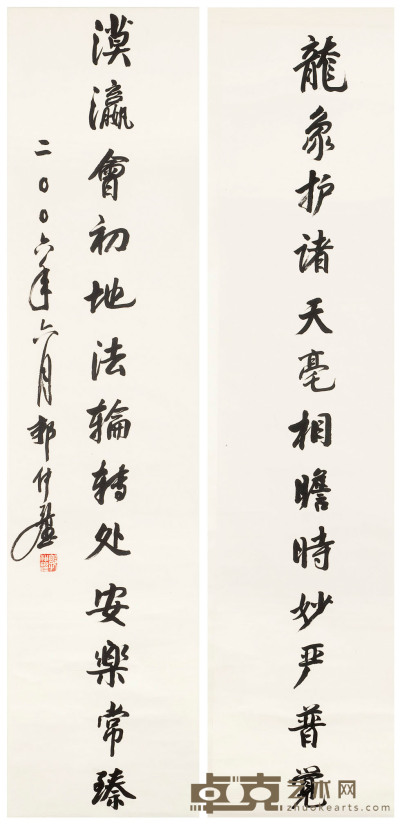 龍象护诸天毫相瞻時妙严普覺
漠瀛會初地法輪轉处安樂常臻
二〇〇六年六月郭仲選
卓克艺术网
zhuokearts.com